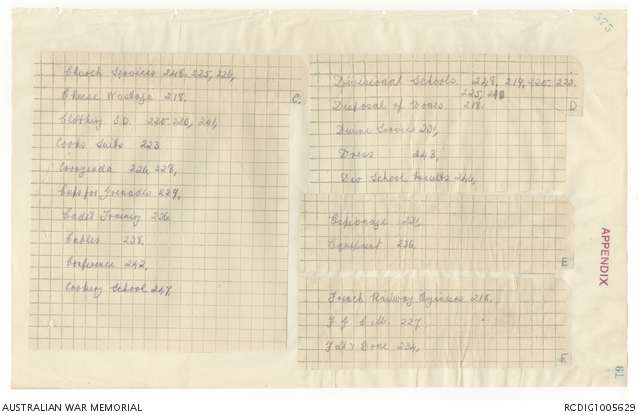 575
Church Services 218, 225, 226,
Cheese Wastage 218,
C.
Clothing S.D. 220, 241,
Cooks Suits 223
Corrigenda 226, 228,
Caps for Grenades 229,
Cadet Training 236
Cables 238
Conference 242,
Cooking School 247,
Divisional Schools 218, 219, 220, 222
225,
Disposal of Bones 218
D
Divine Service 231,
Dress 243,
Div School Results 246,
Espionage 231,
Equipment 236
E
French Railway 218
F G C.M. 227
Fat & Bone 234,
F
APPENDIX
AUSTRALIAN WAR MEMORIAL
RCDIG1005629